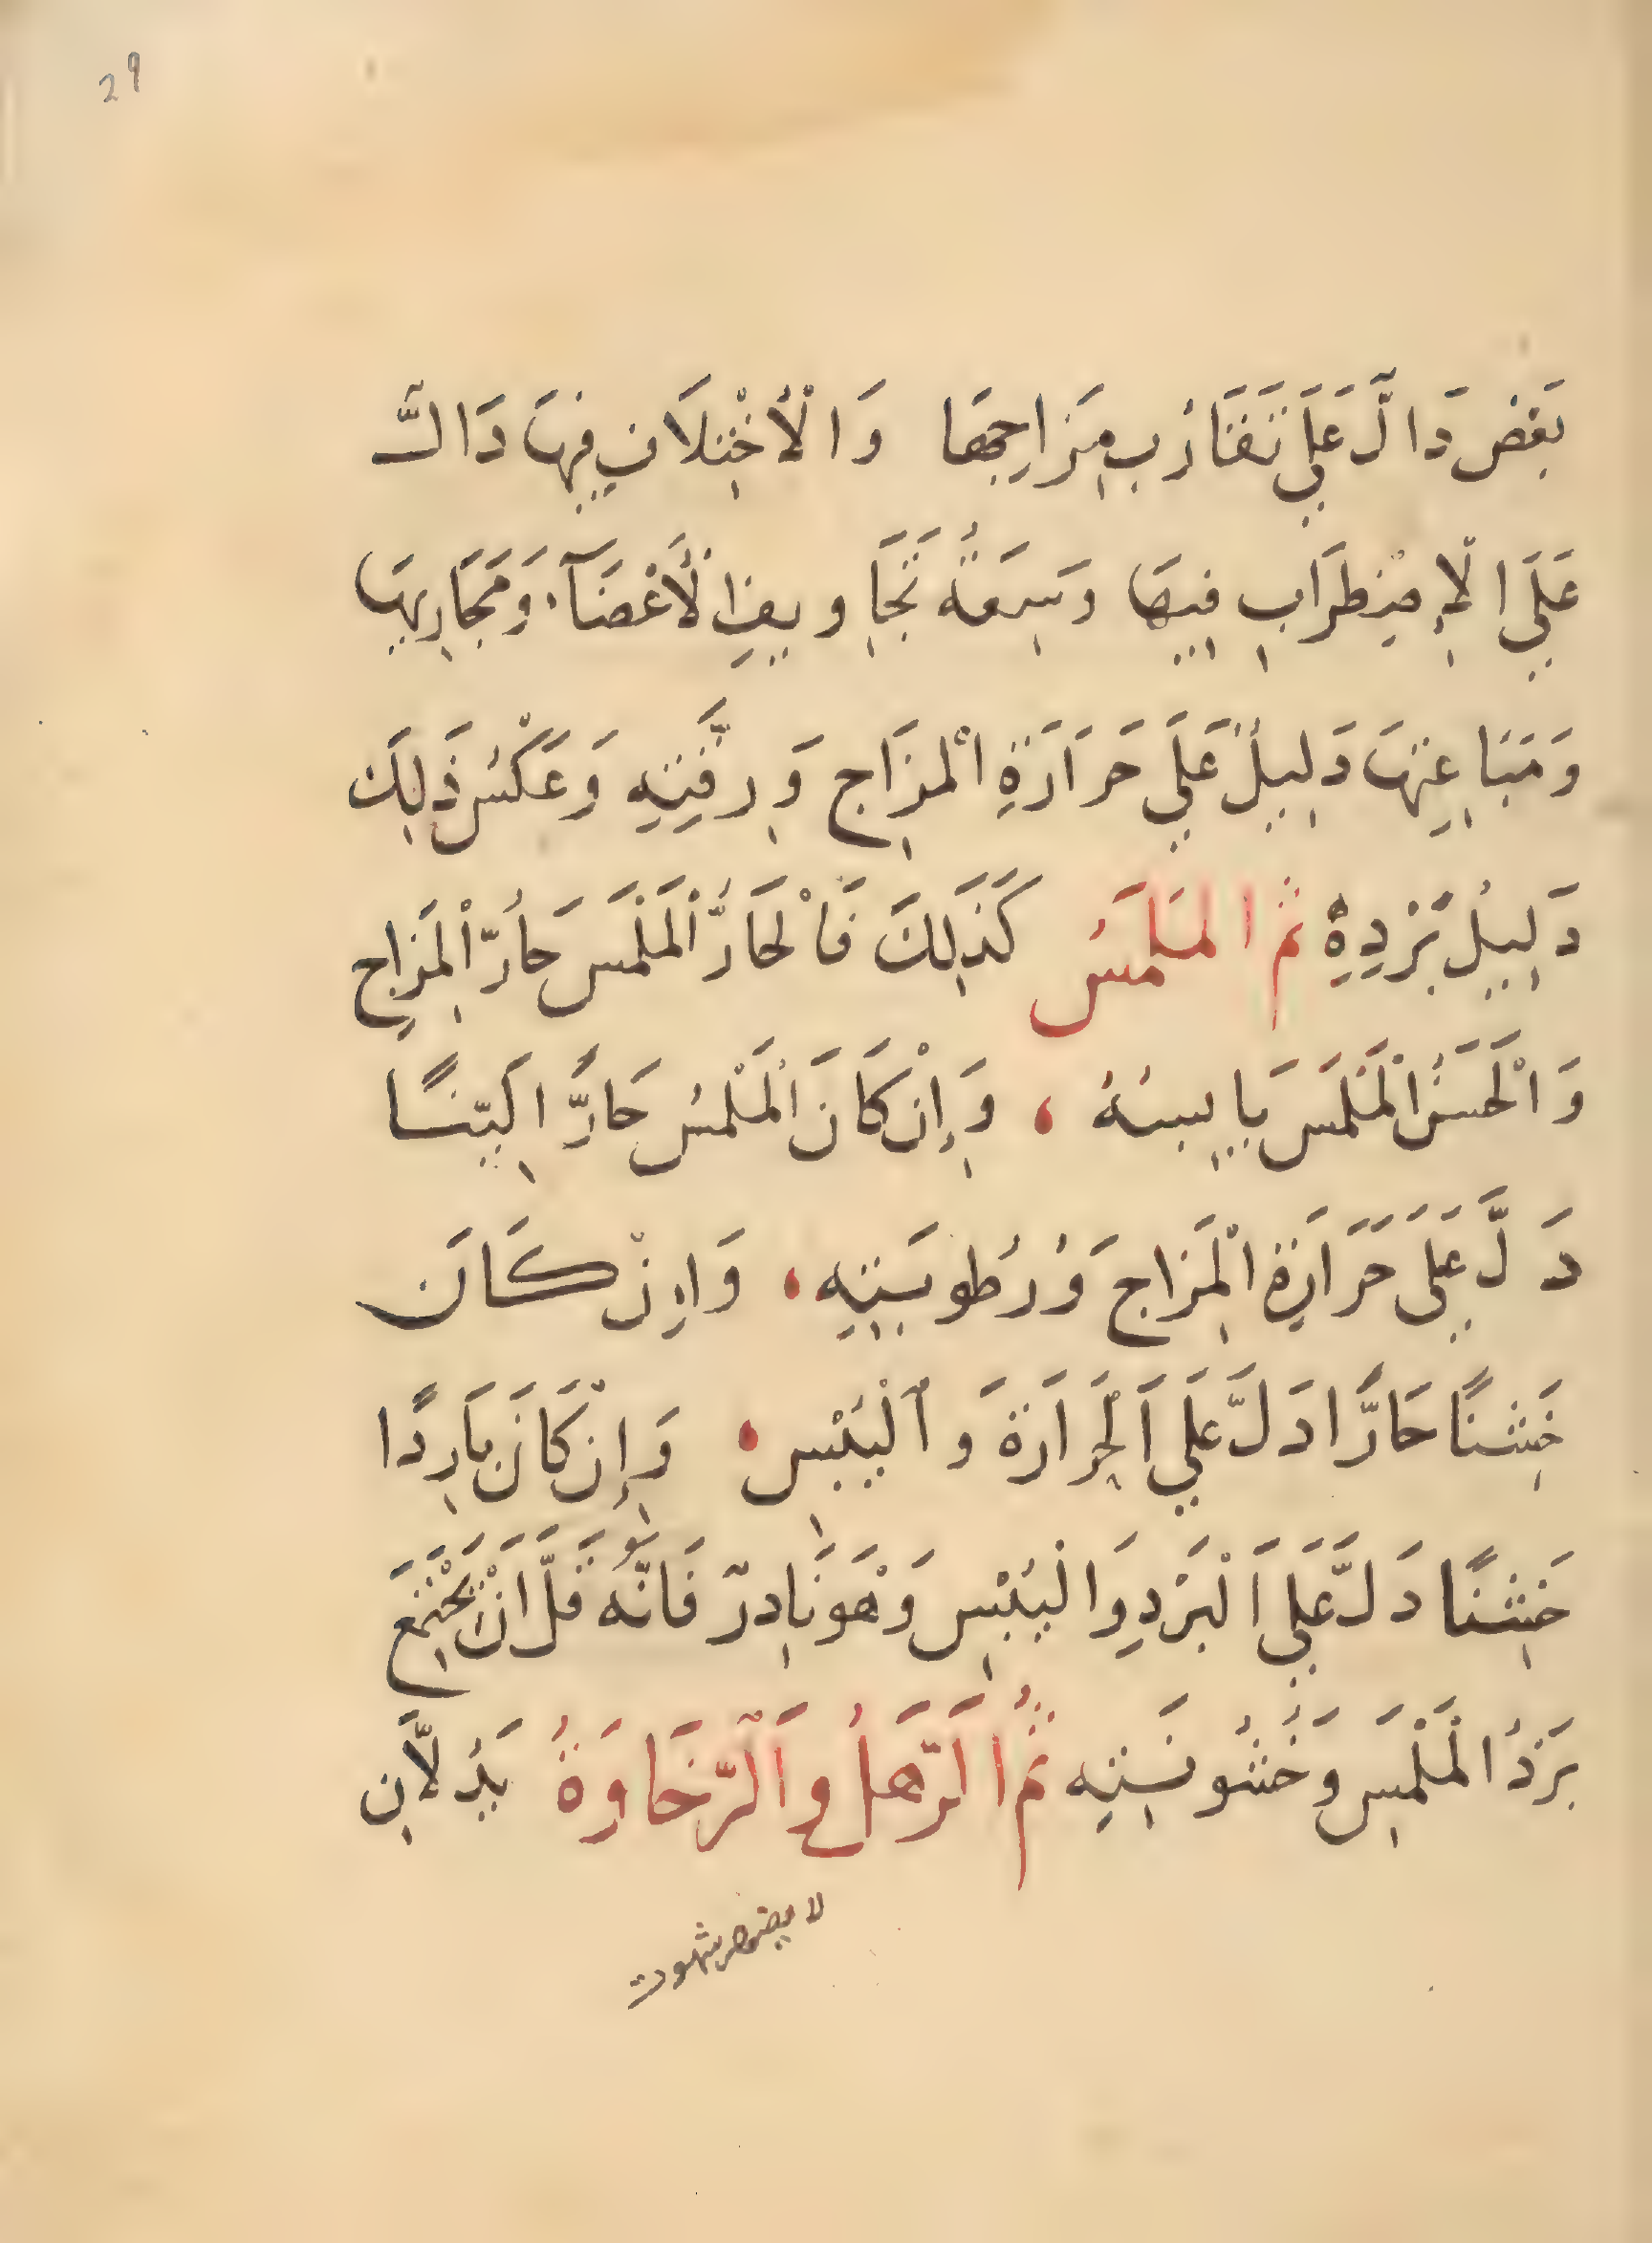 29
بَعْضٍ دَالَّ عَلَي تَقَارُبِ مِزَاجِهَا وَالْأَخْتِلَافِ فِيهَا دَالٌّ
عَلَي الْإِضْطِرَابِ فِيهَا وَسِعَةُ تَجَاوِيفِ الْأَعْضَآءِ وَمَجَارِيهَا
وَمَنَابِعِهَا دَلِيلٌ عَلَي حَرَارَةِ الْمِزَاجِ وَرِقَّتِهِ وَعَكْسُ ذَلِكَ
دَلِيلُ بَرْدِهِ ثُمَّ الْمَلْمَسُ كَذَلِكَ فَالْحَارُّ الْمَلْمَسِ حَارُّ الْمِزَاجِ
وَالْخَشِنُ الْمَلْمَسِ يَابِسُهُ ، وَإِنْ كَانَ الْمَلْمَسُ حَارًّا لَيِّنًا
دَلَّ عَلَي حَرَارَةِ الْمِزَاجِ وَرُطُوبَتِهِ ، وَإِنْ كَانَ
خَشِنًا حَارًّا دَلَّ عَلَي اَلْحَرَارَةِ وَالْيُبْسِ ، وَإِنْ كَانَ بَارِدًا
خَشِنًا دَلَّ عَلَي اَلْبَرْدِ وَالْيُبْسِ وَهُوَ نَادِرٌ فَانَّهُ قَلَّ اَنْ يَجْتَمِعَ
بَرْدُ الْمَلْمَسِ وَخُشُونَتِهِ ثُمَّ الرَّهَلُ وَالرَّخَاوَةُ يَدُلَّانِ